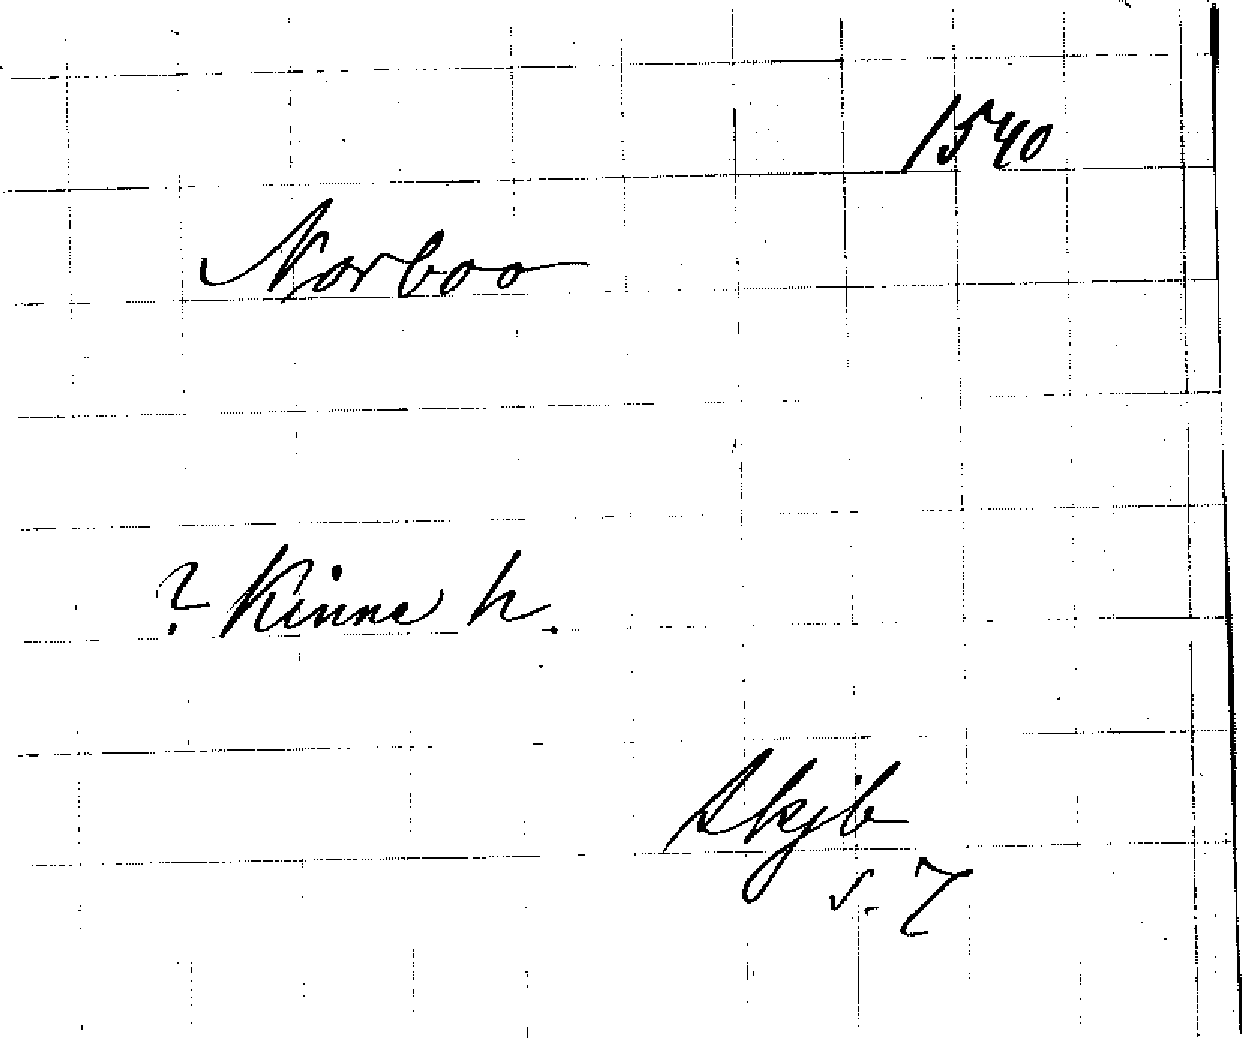 1540
Norboo
? Kinne h.
Skjb
s. 7